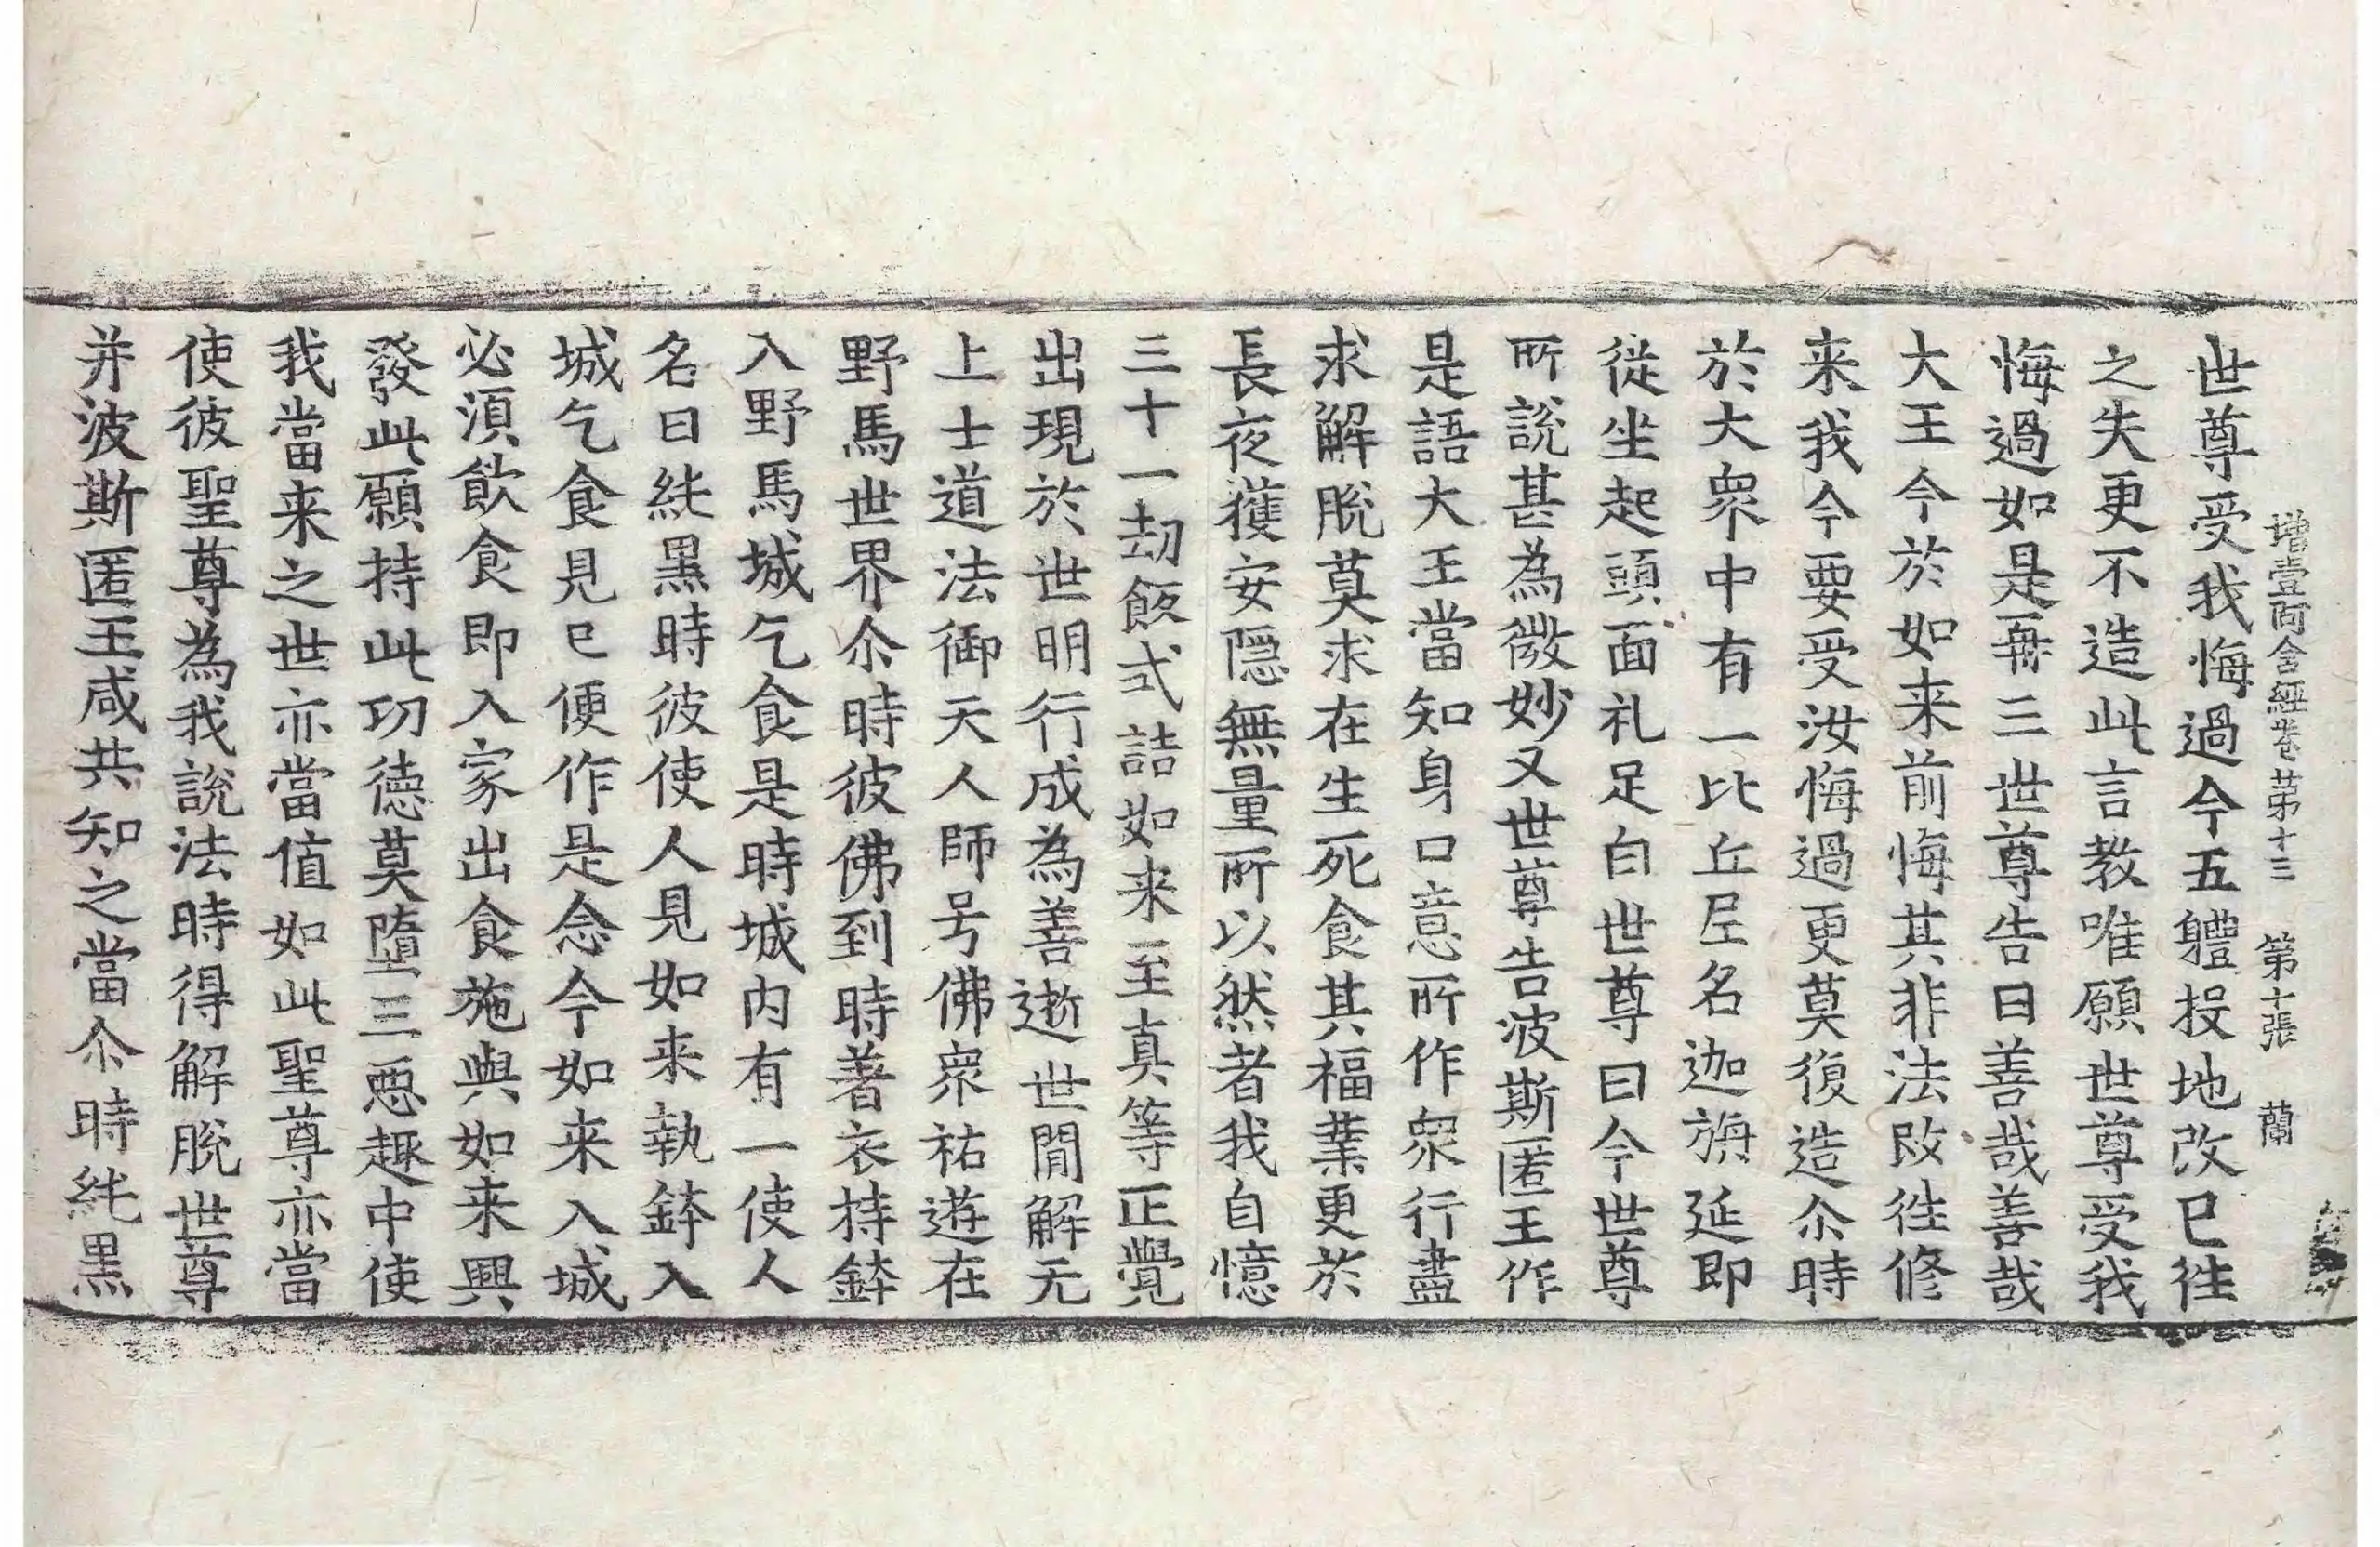 増壹阿含経卷苐十三　第十張　蘭
世尊受我悔過今五軆投地改已徃
之失更不造此言教唯願世尊受我
悔過如是再三世尊告曰善哉善哉
大王今於如来前悔其非法改徃修
来我今要受汝悔過更莫復造尒時
於大衆中有一比丘尼名迦旃延即
従坐起頭面礼足白世尊曰今世尊
所說甚為微妙又世尊告波斯匿王作
是語大王當知身口意所作衆行盡
求解脫莫求在生死食其福業更於
長夜獲安隠無量所以然者我自憶
三十一劫飯式詰如来至真等正覺
出現於世明行成為善逝世閒解无
上士道法御天人師号佛衆祐遊在
野馬世界尒時彼佛到時著衣持鉢
入野馬城乞食是時城内有一使人
名曰純黒時彼使人見如来執鉢入
城乞食見已便作是念今如来入城
必湏飲食即入家出食施與如来興
發此願持此功徳莫墮三惡趣中使
我當来之世亦當值如此聖尊亦當
使彼聖尊為我說法時得解脫世尊
并波斯匿王咸共知之當尒時純黒